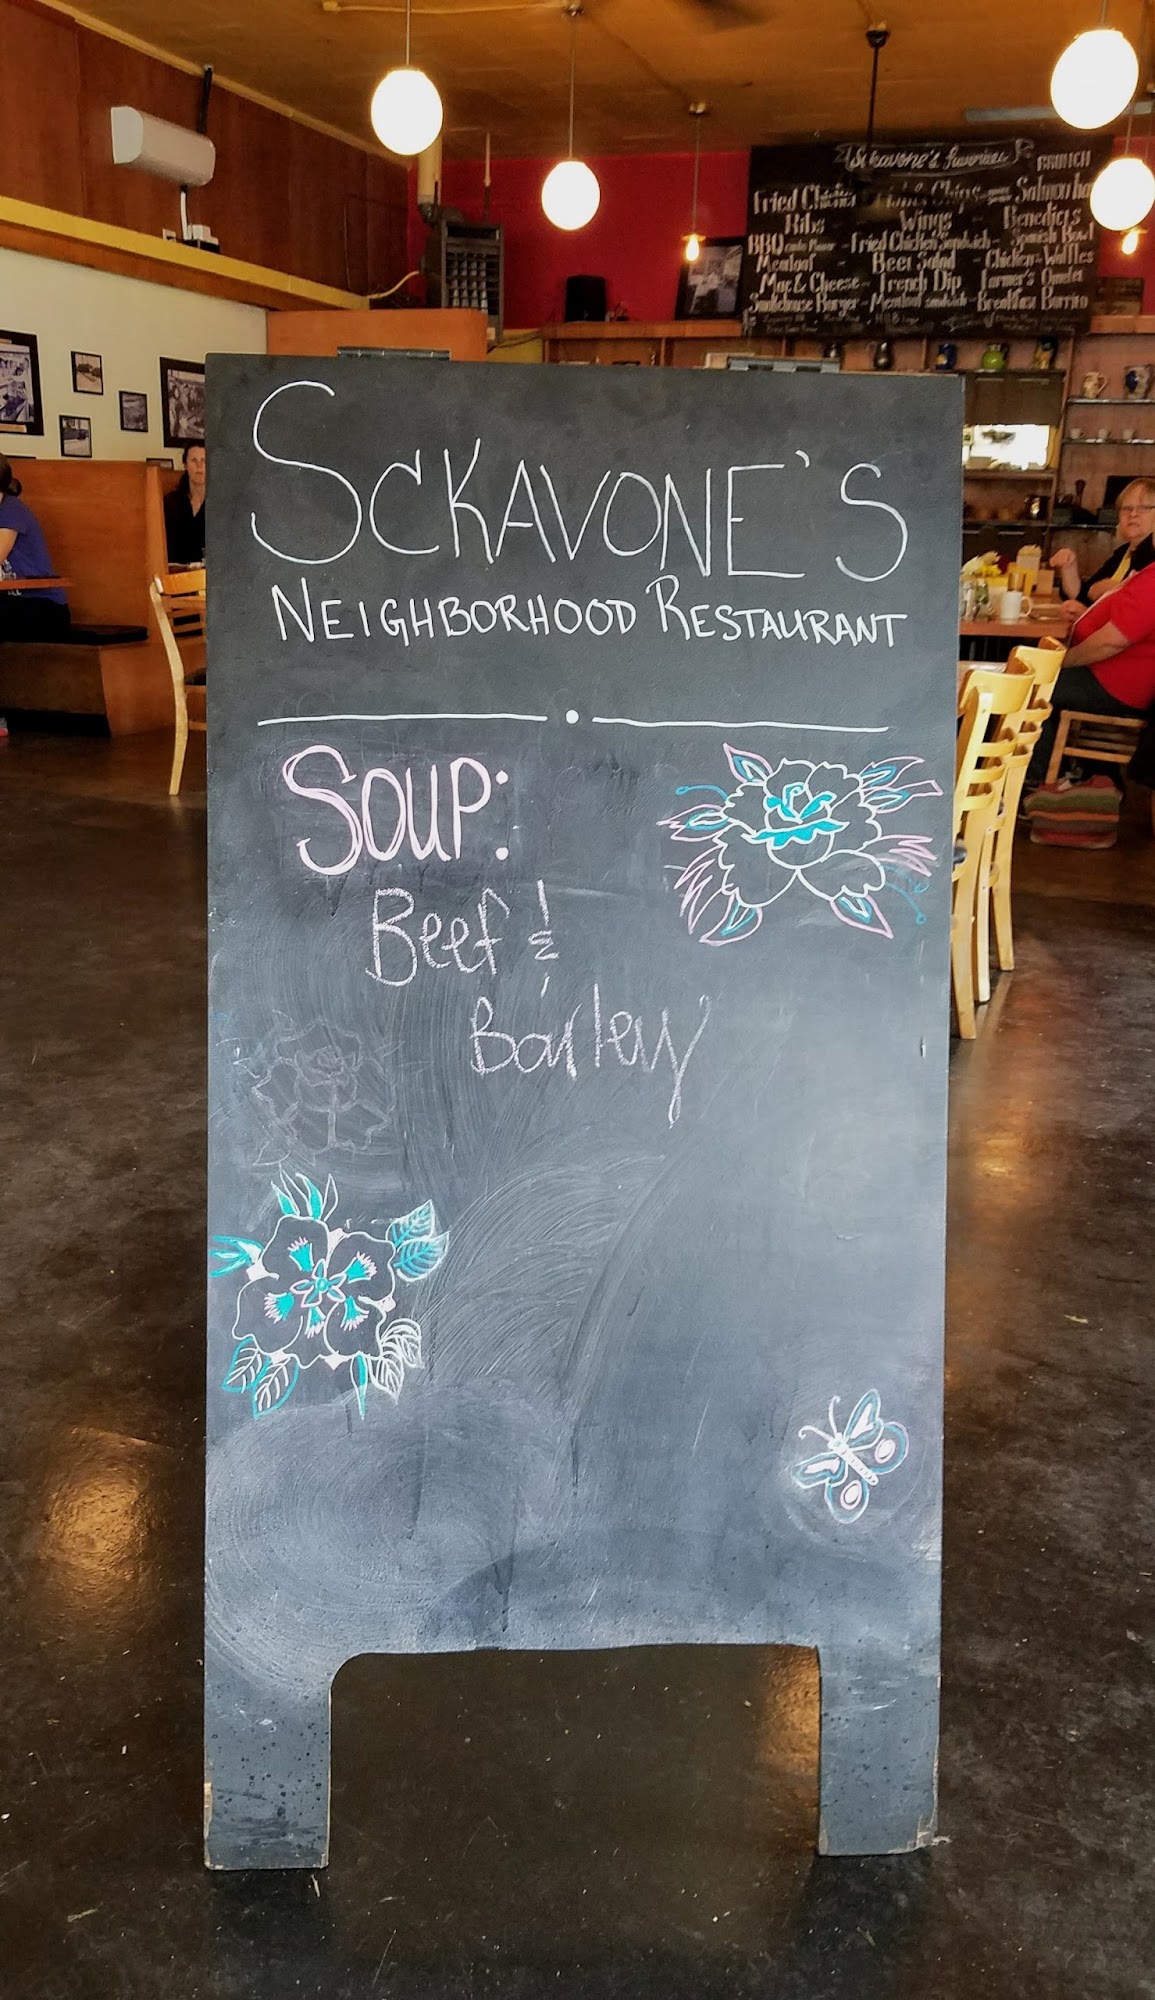 Sckavone's favorites BRUNCH
Fried Chicken Fish & Chips Salmon
Ribs Wings Benedicts
BBQ Fried Chicken Sandwich Spanish Bowl
Meatloaf - Beet Salad - Chicken & Waffles
Mac & Cheese - French Dip Farmer's Omelet
Smokehouse Burger - Meatloaf sandwich - Breakfast Burrito
SCKAVONE'S
NEIGHBORHOOD RESTAURANT
SOUP:
Beef &
Barley